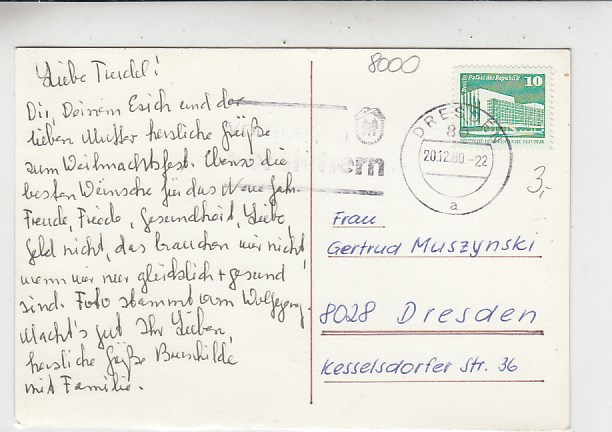 Liebe Trudel!
Dir, Deinem Erich und der
lieben Mutter herzliche Grüße
zum Weihnachtsfest. Ebenso die
besten Wünsche für das Neue Jahr.
Freude, Friede, Gesundheit, Liebe,
Geld nicht, das brauchen wir nicht,
wenn wir nur glücklich + gesund
sind. Foto stammt vom Wolfgang.
Macht's gut Ihr Lieben,
herzliche Grüße Brunhilde
mit Familie.
8000
Palast der Republik 10
DRESDEN
80
20.12.80.-22
a
ern
3,-
Frau
Gertrud Muszynski
8028 Dresden
Kesselsdorfer Str. 36